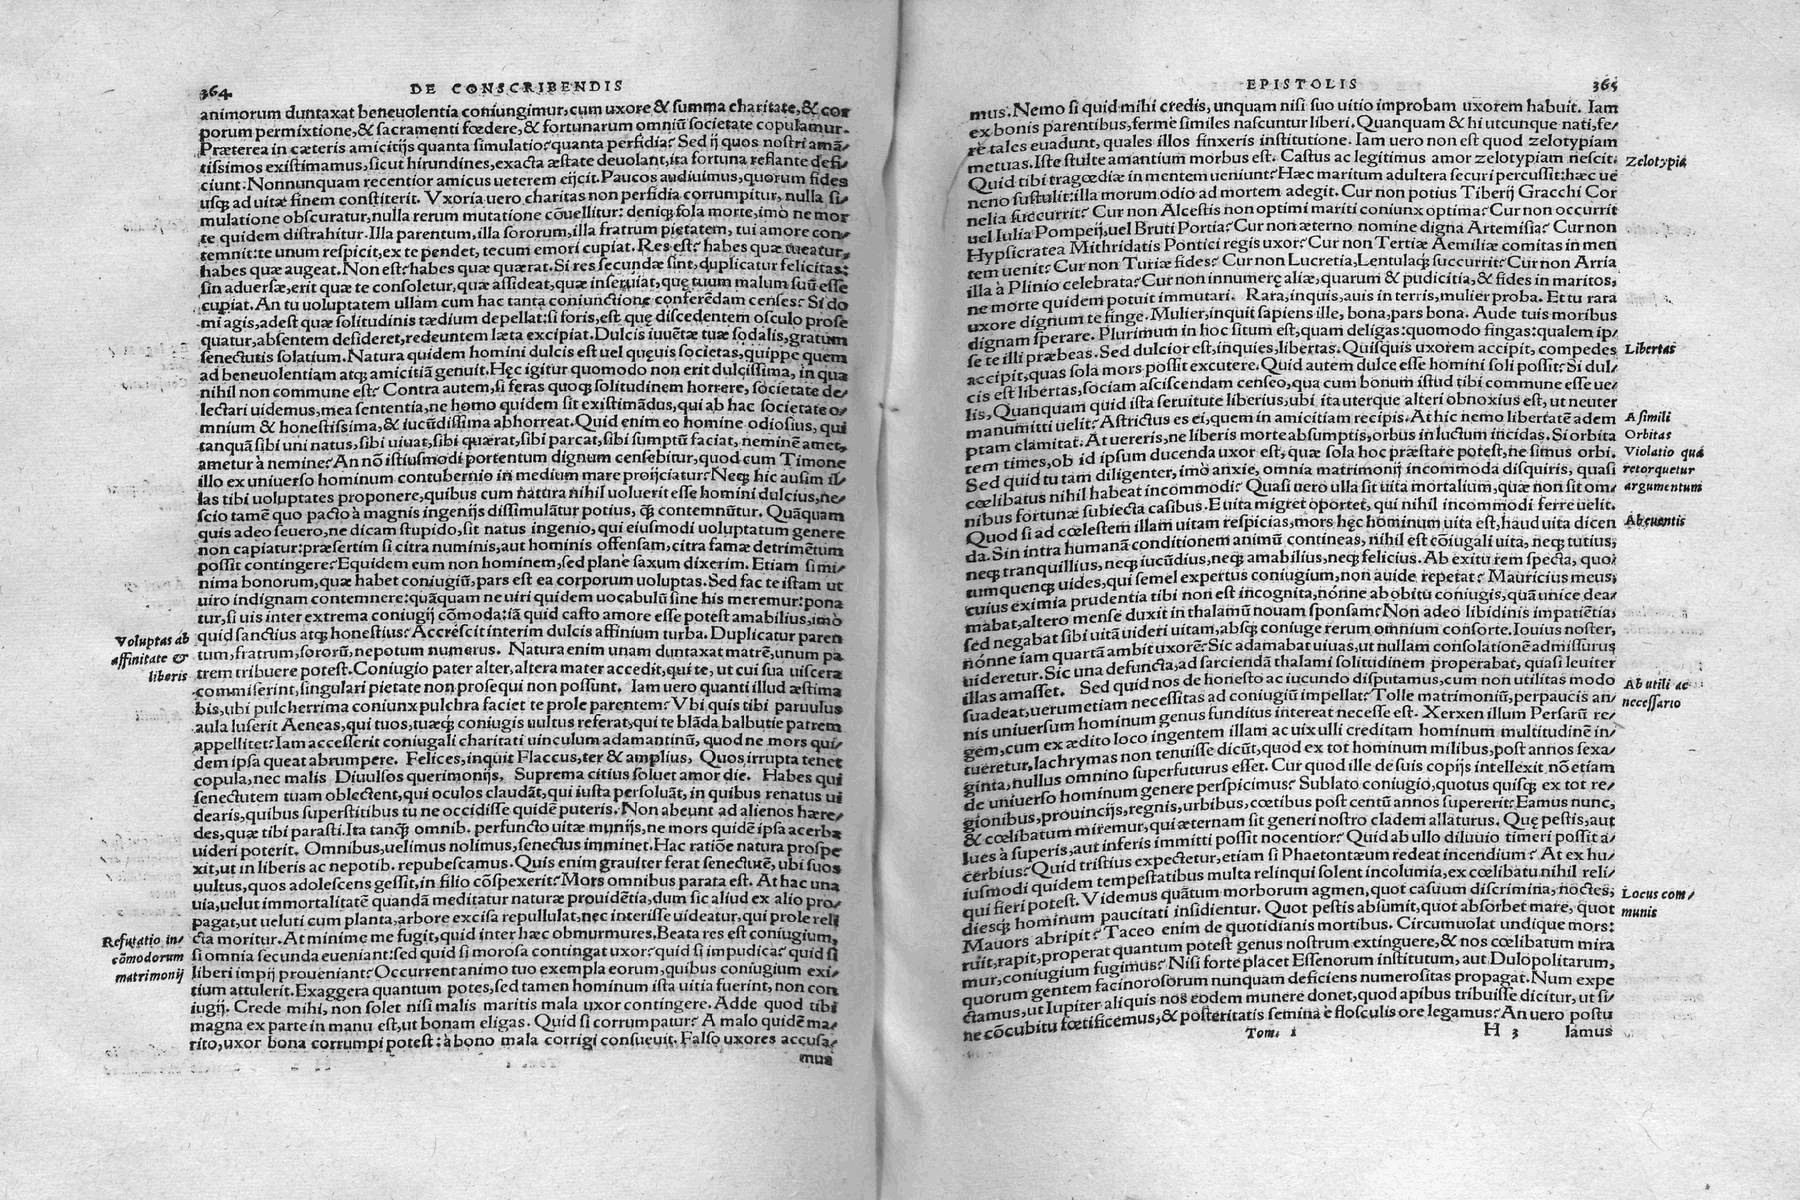 364 DE CONSCRIBENDIS
animorum duntaxat beneuolentia coniungimur, cum uxore & summa charitate, & cor
porum permixtione, & sacramenti fœdere, & fortunarum omniũ societate copulamur.
Præterea in cæteris amicitijs quanta simulatio? quanta perfidia? Sed ij quos nostri amã/
tissimos existimamus, sicut hirundines, exacta æstate deuolant, ita fortuna reflante defi/
ciunt. Nonnunquam recentior amicus ueterem eijcit. Paucos audiuimus, quorum fides
usq; ad uitæ finem constiterit. Vxoria uero charitas non perfidia corrumpitur, nulla si/
mulatione obscuratur, nulla rerum mutatione cõuellitur: deniq; sola morte, imò ne mor
te quidem distrahitur. Illa parentum, illa sororum, illa fratrum pietatem, tui amore con/
temnit: te unum respicit, ex te pendet, tecum emori cupiat. Res est? habes quæ tueatur,
habes quæ augeat. Non est? habes quæ quærat. Si res secundæ sint, duplicatur felicitas:
sin aduersæ, erit quæ te consoletur, quæ assideat, quæ inseruiat, quę tuum malum suũ esse
cupiat. An tu uoluptatem ullam cum hac tanta coniunctione conferẽdam censes? Si do
mi agis, adest quæ solitudinis tædium depellat: si foris, est quę discedentem osculo prose
quatur, absentem desideret, redeuntem læta excipiat. Dulcis iuuẽtæ tuæ sodalis, gratum
senectutis solatium. Natura quidem homini dulcis est uel quęuis societas, quippe quem
ad beneuolentiam atq; amicitiã genuit. Hęc igitur quomodo non erit dulcissima, in qua
nihil non commune est? Contra autem, si feras quoq; solitudinem horrere, societate de/
lectari uidemus, mea sententia, ne homo quidem sit existimãdus, qui ab hac societate o/
mnium & honestissima, & iucũdissima abhorreat. Quid enim eo homine odiosius, qui
tanquã sibi uni natus, sibi uiuat, sibi quærat, sibi parcat, sibi sumptũ faciat, neminẽ amet,
ametur à nemine? An nõ istiusmodi portentum dignum censebitur, quod cum Timone
illo ex uniuerso hominum contubernio in medium mare proijciatur? Neq; hic ausim il/
las tibi uoluptates proponere, quibus cum natura nihil uoluerit esse homini dulcius, ne/
scio tamẽ quo pacto à magnis ingenijs dissimulãtur potius, q̃ȝ contemnũtur. Quãquam
quis adeo seuero, ne dicam stupido, sit natus ingenio, qui eiusmodi uoluptatum genere
non capiatur: præsertim si citra numinis, aut hominis offensam, citra famæ detrimẽtum
possit contingere? Equidem eum non hominem, sed plane saxum dixerim. Etiam si mi/
nima bonorum, quæ habet coniugiũ, pars est ea corporum uoluptas. Sed fac te istam ut
uiro indignam contemnere: quãquam ne uiri quidem uocabulũ sine his meremur: pona
tur, si uis inter extrema coniugij cõmoda: iã quid casto amore esse potest amabilius, imò
Voluptas ab quid sanctius atq; honestius? Accrescit interim dulcis affinium turba. Duplicatur paren
affinitate & tum, fratrum, sororũ, nepotum numerus. Natura enim unam duntaxat matrẽ, unum pa
liberis trem tribuere potest. Coniugio pater alter, altera mater accedit, qui te, ut cui sua uiscera
commiserint, singulari pietate non prosequi non possunt. Iam uero quanti illud æstima
bis, ubi pulcherrima coniunx pulchra faciet te prole parentem? Vbi quis tibi paruulus
aula luserit Aeneas, qui tuos, tuæq; coniugis uultus referat, qui te blãda balbutie patrem
appellitet? Iam accesserit coniugali charitati uinculum adamantinũ, quod ne mors qui/
dem ipsa queat abrumpere. Felices, inquit Flaccus, ter & amplius, Quos irrupta tenet
copula, nec malis Diuulsos querimonijs, Suprema citius soluet amor die. Habes qui
senectutem tuam oblectent, qui oculos claudãt, qui iusta persoluãt, in quibus renatus ui
dearis, quibus superstitibus tu ne occidisse quidẽ puteris. Non abeunt ad alienos hære/
des, quæ tibi parasti. Ita tanq̃ȝ omnib. perfuncto uitæ munijs, ne mors quidẽ ipsa acerba
uideri poterit. Omnibus, uelimus nolimus, senectus imminet. Hac ratiõe natura prospe
xit, ut in liberis ac nepotib. repubescamus. Quis enim grauiter ferat senectutẽ, ubi suos
uultus, quos adolescens gessit, in filio cõspexerit? Mors omnibus parata est. At hac una
uia, uelut immortalitatẽ quandã meditatur naturæ prouidẽtia, dum sic aliud ex alio pro/
pagat, ut ueluti cum planta, arbore excisa repullulat, nec interisse uideatur, qui prole reli
Refutatio in/ cta moritur. At minime me fugit, quid inter hæc obmurmures, Beata res est coniugium,
cõmodorum si omnia secunda eueniant: sed quid si morosa contingat uxor? quid si impudica? quid si
matrimonij liberi impij proueniant? Occurrent animo tuo exempla eorum, quibus coniugium exi/
tium attulerit. Exaggera quantum potes, sed tamen hominum ista uitia fuerint, non con
iugij. Crede mihi, non solet nisi malis maritis mala uxor contingere. Adde quod tibi
magna ex parte in manu est, ut bonam eligas. Quid si corrumpatur? A malo quidẽ ma/
rito, uxor bona corrumpi potest: à bono mala corrigi consueuit. Falso uxores accusa/
mus
EPISTOLIS 365
mus. Nemo si quid mihi credis, unquam nisi suo uitio improbam uxorem habuit. Iam
ex bonis parentibus, ferme similes nascuntur liberi. Quanquam & hi utcunque nati, fe/
rè tales euadunt, quales illos finxeris institutione. Iam uero non est quod zelotypiam
metuas. Iste stulte amantium morbus est. Castus ac legitimus amor zelotypiam nescit. Zelotypia
Quid tibi tragœdiæ in mentem ueniunt? Hæc maritum adultera securi percussit: hæc ue
neno sustulit: illa morum odio ad mortem adegit. Cur non potius Tiberij Gracchi Cor
nelia succurrit? Cur non Alcestis non optimi mariti coniunx optima? Cur non occurrit
uel Iulia Pompeij, uel Bruti Portia? Cur non æterno nomine digna Artemisia? Cur non
Hypsicratea Mithridatis Pontici regis uxor? Cur non Tertiæ Aemiliæ comitas in men
tem uenit? Cur non Turiæ fides? Cur non Lucretia, Lentulaq; succurrit? Cur non Arria
illa à Plinio celebrata? Cur non innumerę aliæ, quarum & pudicitia, & fides in maritos,
ne morte quidem potuit immutari. Rara, inquis, auis in terris, mulier proba. Et tu rara
uxore dignum te finge. Mulier, inquit sapiens ille, bona, pars bona. Aude tuis moribus
dignam sperare. Plurimum in hoc situm est, quam deligas: quomodo fingas: qualem ip/
se te illi præbeas. Sed dulcior est, inquies, libertas. Quisquis uxorem accipit, compedes Libertas
accipit, quas sola mors possit excutere. Quid autem dulce esse homini soli possit? Si dul/
cis est libertas, sociam asciscendam censeo, qua cum bonum istud tibi commune esse ue/
lis, Quanquam quid ista seruitute liberius, ubi ita uterque alteri obnoxius est, ut neuter
manumitti uelit? Astrictus es ei, quem in amicitiam recipis. At hic nemo libertatẽ adem A simili
ptam clamitat. At uereris, ne liberis morte absumptis, orbus in luctum incidas. Si orbita Orbitas
tem times, ob id ipsum ducenda uxor est, quæ sola hoc præstare potest, ne simus orbi. Violatio quã
Sed quid tu tam diligenter, imò anxie, omnia matrimonij incommoda disquiris, quasi retorquetur
cœlibatus nihil habeat incommodi? Quasi uero ulla sit uita mortalium, quæ non sit om/ argumentum
nibus fortunæ subiecta casibus. E uita migret oportet, qui nihil incommodi ferre uelit.
Quod si ad cœlestem illam uitam respicias, mors hęc hominum uita est, haud uita dicen Ab euentis
da. Sin intra humanã conditionem animũ contineas, nihil est cõiugali uita, neq; tutius,
neq; tranquillius, neq; iucũdius, neq; amabilius, neq; felicius. Ab exitu rem specta, quo/
tumcunq; uides, qui semel expertus coniugium, non auide repetat? Mauricius meus,
cuius eximia prudentia tibi non est incognita, nónne ab obitu coniugis, quã unice dea/
mabat, altero mense duxit in thalamũ nouam sponsam? Non adeo libidinis impatiẽtia,
sed negabat sibi uitã uideri uitam, absq; coniuge rerum omnium consorte. Iouius noster,
nónne iam quartã ambit uxorẽ? Sic adamabat uiuas, ut nullam consolationẽ admissurus
uideretur. Sic una defuncta, ad sarciendã thalami solitudinem properabat, quasi leuiter
illas amasset. Sed quid nos de honesto ac iucundo disputamus, cum non utilitas modo Ab utili ac
suadeat, uerumetiam necessitas ad coniugiũ impellat? Tolle matrimoniũ, perpaucis an/ necessario
nis uniuersum hominum genus funditus intereat necesse est. Xerxen illum Persarũ re/
gem, cum ex ædito loco ingentem illam ac uix ulli creditam hominum multitudinẽ in/
tueretur, lachrymas non tenuisse dicũt, quod ex tot hominum milibus, post annos sexa/
ginta, nullus omnino superfuturus esset. Cur quod ille de suis copijs intellexit, nõ etiam
de uniuerso hominum genere perspicimus? Sublato coniugio, quotus quisq; ex tot re/
gionibus, prouincijs, regnis, urbibus, cœtibus post centũ annos supererit? Eamus nunc,
& cœlibatum miremur, qui æternam sit generi nostro cladem allaturus. Quę pestis, aut
lues à superis, aut inferis immitti possit nocentior? Quid ab ullo diluuio timeri possit a/
cerbius? Quid tristius expectetur, etiam si Phaetontæum redeat incendium? At ex hu/
iusmodi quidem tempestatibus multa relinqui solent incolumia, ex cœlibatu nihil reli/
qui fieri potest. Videmus quãtum morborum agmen, quot casuum discrimina, noctes, Locus com/
diesq; hominum paucitati insidientur. Quot pestis absumit, quot absorbet mare, quot munis
Mauors abripit? Taceo enim de quotidianis mortibus. Circumuolat undique mors:
ruit, rapit, properat quantum potest genus nostrum extinguere, & nos cœlibatum mira
mur, coniugium fugimus? Nisi forte placet Essenorum institutum, aut Dulopolitarum,
quorum gentem facinorosorum nunquam deficiens numerositas propagat. Num expe
ctamus, ut Iupiter aliquis nos eodem munere donet, quod apibus tribuisse dicitur, ut si/
ne cõcubitu fœtificemus, & posteritatis semina è flosculis ore legamus? An uero postu
Tom. 1 H 3 lamus